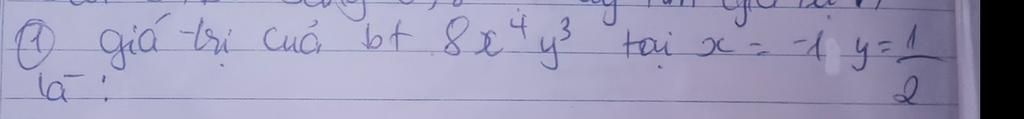 ① giá trị của bt 8x⁴y³ tại x = -1 y = 1/2
là :